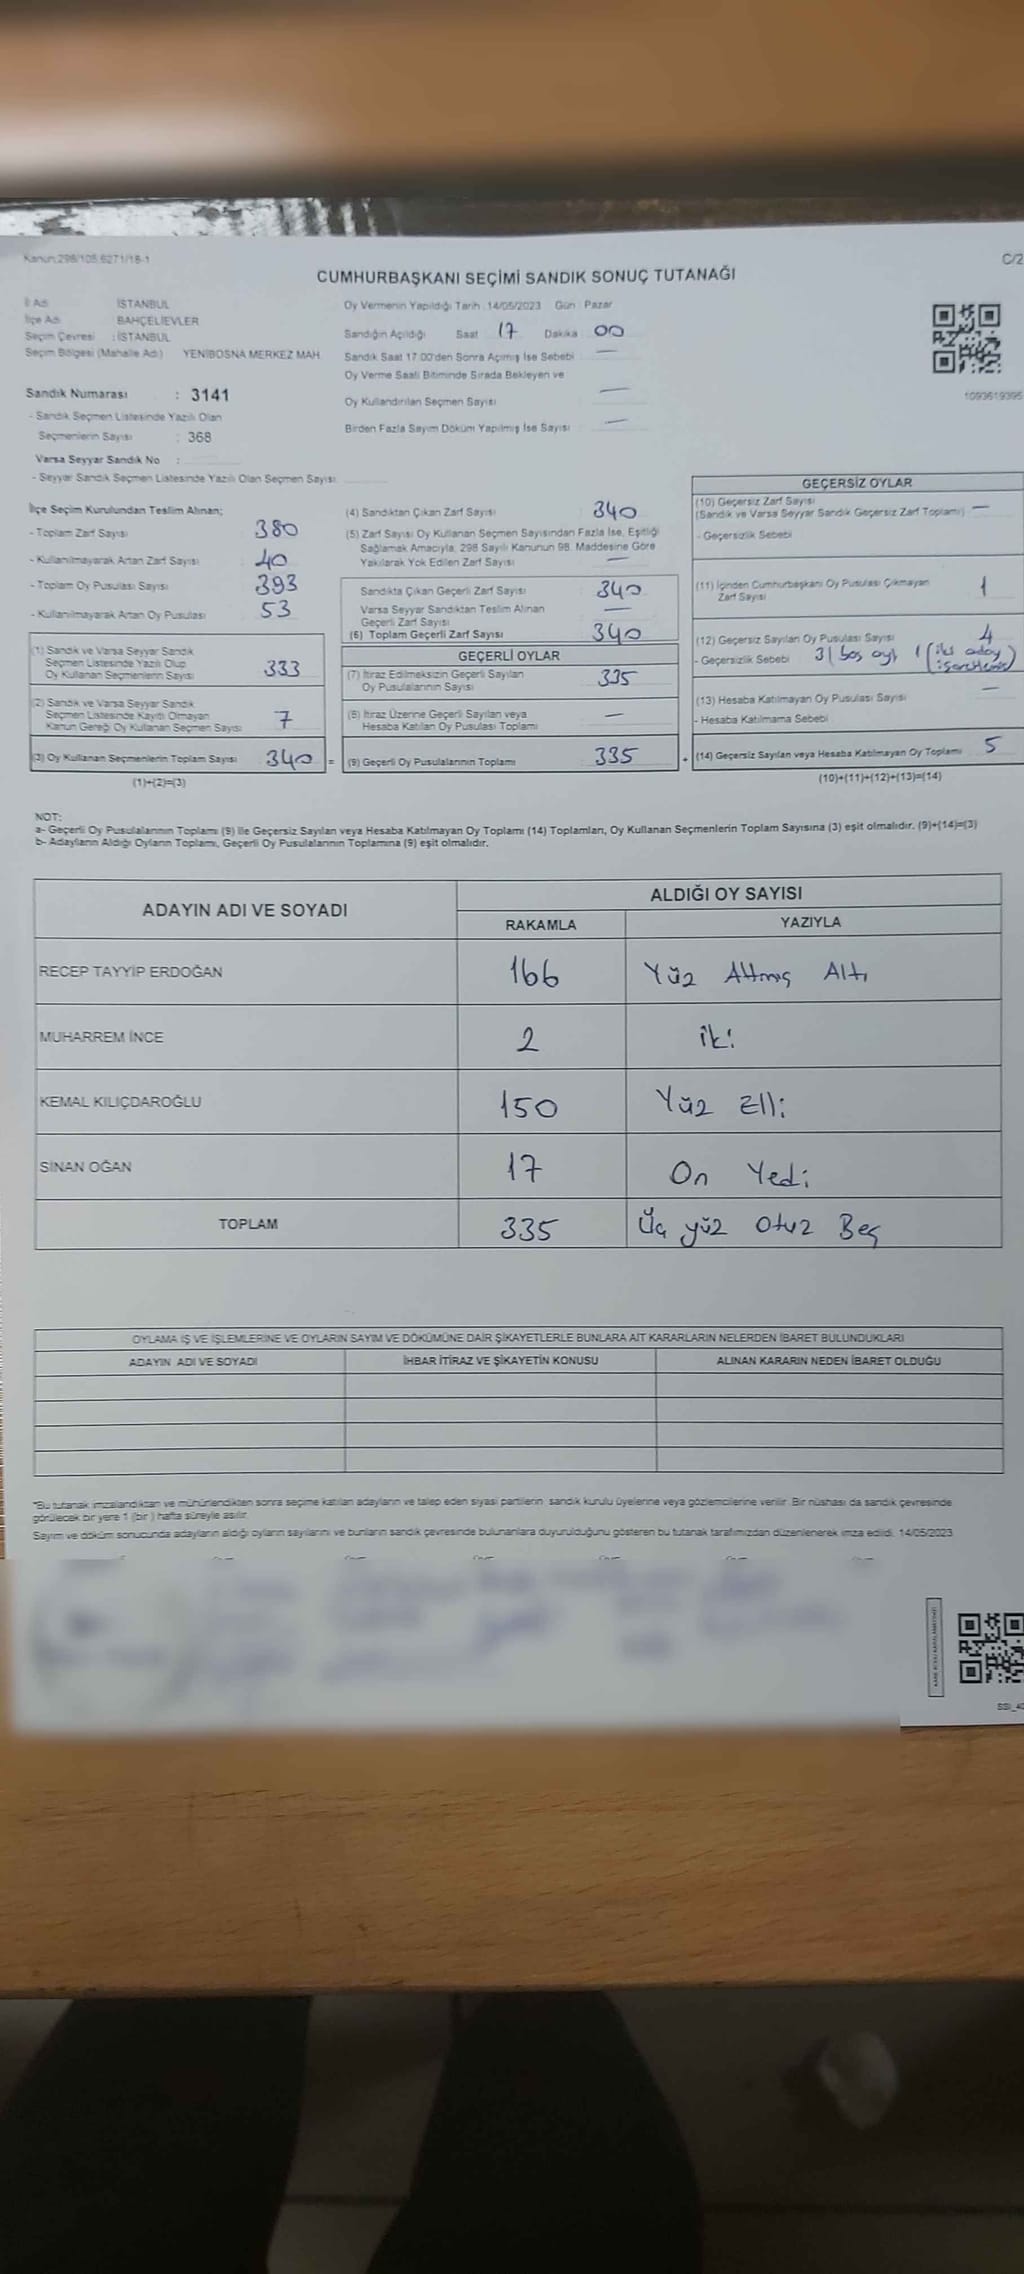 Kanun:298/105,6271/18-1
C/2
CUMHURBAŞKANI SEÇİMİ SANDIK SONUÇ TUTANAĞI
İl Adı İSTANBUL
İlçe Adı BAHÇELİEVLER
Seçim Çevresi : İSTANBUL
Seçim Bölgesi (Mahalle Adı) YENİBOSNA MERKEZ MAH.
Oy Vermenin Yapıldığı Tarih : 14/05/2023 Gün : Pazar
Sandığın Açıldığı Saat 17 Dakika 00
Sandık Saat 17.00'den Sonra Açılmış İse Sebebi —
Oy Verme Saati Bitiminde Sırada Bekleyen ve
Oy Kullandırılan Seçmen Sayısı —
Birden Fazla Sayım Döküm Yapılmış İse Sayısı —
1093619395
Sandık Numarası : 3141
- Sandık Seçmen Listesinde Yazılı Olan
Seçmenlerin Sayısı : 368
Varsa Seyyar Sandık No :
- Seyyar Sandık Seçmen Listesinde Yazılı Olan Seçmen Sayısı:
İlçe Seçim Kurulundan Teslim Alınan;
- Toplam Zarf Sayısı 380
- Kullanılmayarak Artan Zarf Sayısı 40
- Toplam Oy Pusulası Sayısı 393
- Kullanılmayarak Artan Oy Pusulası 53
(1) Sandık ve Varsa Seyyar Sandık
Seçmen Listesinde Yazılı Olup
Oy Kullanan Seçmenlerin Sayısı 333
(2) Sandık ve Varsa Seyyar Sandık
Seçmen Listesinde Kayıtlı Olmayan
Kanun Gereği Oy Kullanan Seçmen Sayısı 7
(3) Oy Kullanan Seçmenlerin Toplam Sayısı 340 =
(1)+(2)=(3)
(4) Sandıktan Çıkan Zarf Sayısı 340
(5) Zarf Sayısı Oy Kullanan Seçmen Sayısından Fazla İse, Eşitliği
Sağlamak Amacıyla, 298 Sayılı Kanunun 98. Maddesine Göre
Yakılarak Yok Edilen Zarf Sayısı —
Sandıkta Çıkan Geçerli Zarf Sayısı 340
Varsa Seyyar Sandıktan Teslim Alınan
Geçerli Zarf Sayısı —
(6) Toplam Geçerli Zarf Sayısı 340
GEÇERLİ OYLAR
(7) İtiraz Edilmeksizin Geçerli Sayılan
Oy Pusulalarının Sayısı 335
(8) İtiraz Üzerine Geçerli Sayılan veya
Hesaba Katılan Oy Pusulası Toplamı —
(9) Geçerli Oy Pusulalarının Toplamı 335 +
GEÇERSİZ OYLAR
(10) Geçersiz Zarf Sayısı
(Sandık ve Varsa Seyyar Sandık Geçersiz Zarf Toplamı) —
- Geçersizlik Sebebi
(11) İçinden Cumhurbaşkanı Oy Pusulası Çıkmayan
Zarf Sayısı 1
(12) Geçersiz Sayılan Oy Pusulası Sayısı 4
- Geçersizlik Sebebi 3 (boş oy), 1 (iki aday
(13) Hesaba Katılmayan Oy Pusulası Sayısı —
- Hesaba Katılmama Sebebi
(14) Geçersiz Sayılan veya Hesaba Katılmayan Oy Toplamı 5
(10)+(11)+(12)+(13)=(14)
NOT:
a- Geçerli Oy Pusulalarının Toplamı (9) ile Geçersiz Sayılan veya Hesaba Katılmayan Oy Toplamı (14) Toplamları, Oy Kullanan Seçmenlerin Toplam Sayısına (3) eşit olmalıdır. (9)+(14)=(3)
b- Adayların Aldığı Oyların Toplamı, Geçerli Oy Pusulalarının Toplamına (9) eşit olmalıdır.
ADAYIN ADI VE SOYADI ALDIĞI OY SAYISI
RAKAMLA YAZIYLA
RECEP TAYYİP ERDOĞAN 166 Yüz Altmış Altı
MUHARREM İNCE 2 İki
KEMAL KILIÇDAROĞLU 150 Yüz Elli
SİNAN OĞAN 17 On Yedi
TOPLAM 335 Üç yüz Otuz Beş
OYLAMA İŞ VE İŞLEMLERİNE VE OYLARIN SAYIM VE DÖKÜMÜNE DAİR ŞİKAYETLERLE BUNLARA AİT KARARLARIN NELERDEN İBARET BULUNDUKLARI
ADAYIN ADI VE SOYADI İHBAR İTİRAZ VE ŞİKAYETİN KONUSU ALINAN KARARIN NEDEN İBARET OLDUĞU
*Bu tutanak imzalandıktan ve mühürlendikten sonra seçime katılan adayların ve talep eden siyasi partilerin sandık kurulu üyelerine veya gözlemcilerine verilir. Bir nüshası da sandık çevresinde
görülecek bir yere 1 (bir) hafta süreyle asılır.
Sayım ve döküm sonucunda adayların aldığı oyların sayılarını ve bunların sandık çevresinde bulunanlara duyurulduğunu gösteren bu tutanak tarafımızdan düzenlenerek imza edildi. 14/05/2023